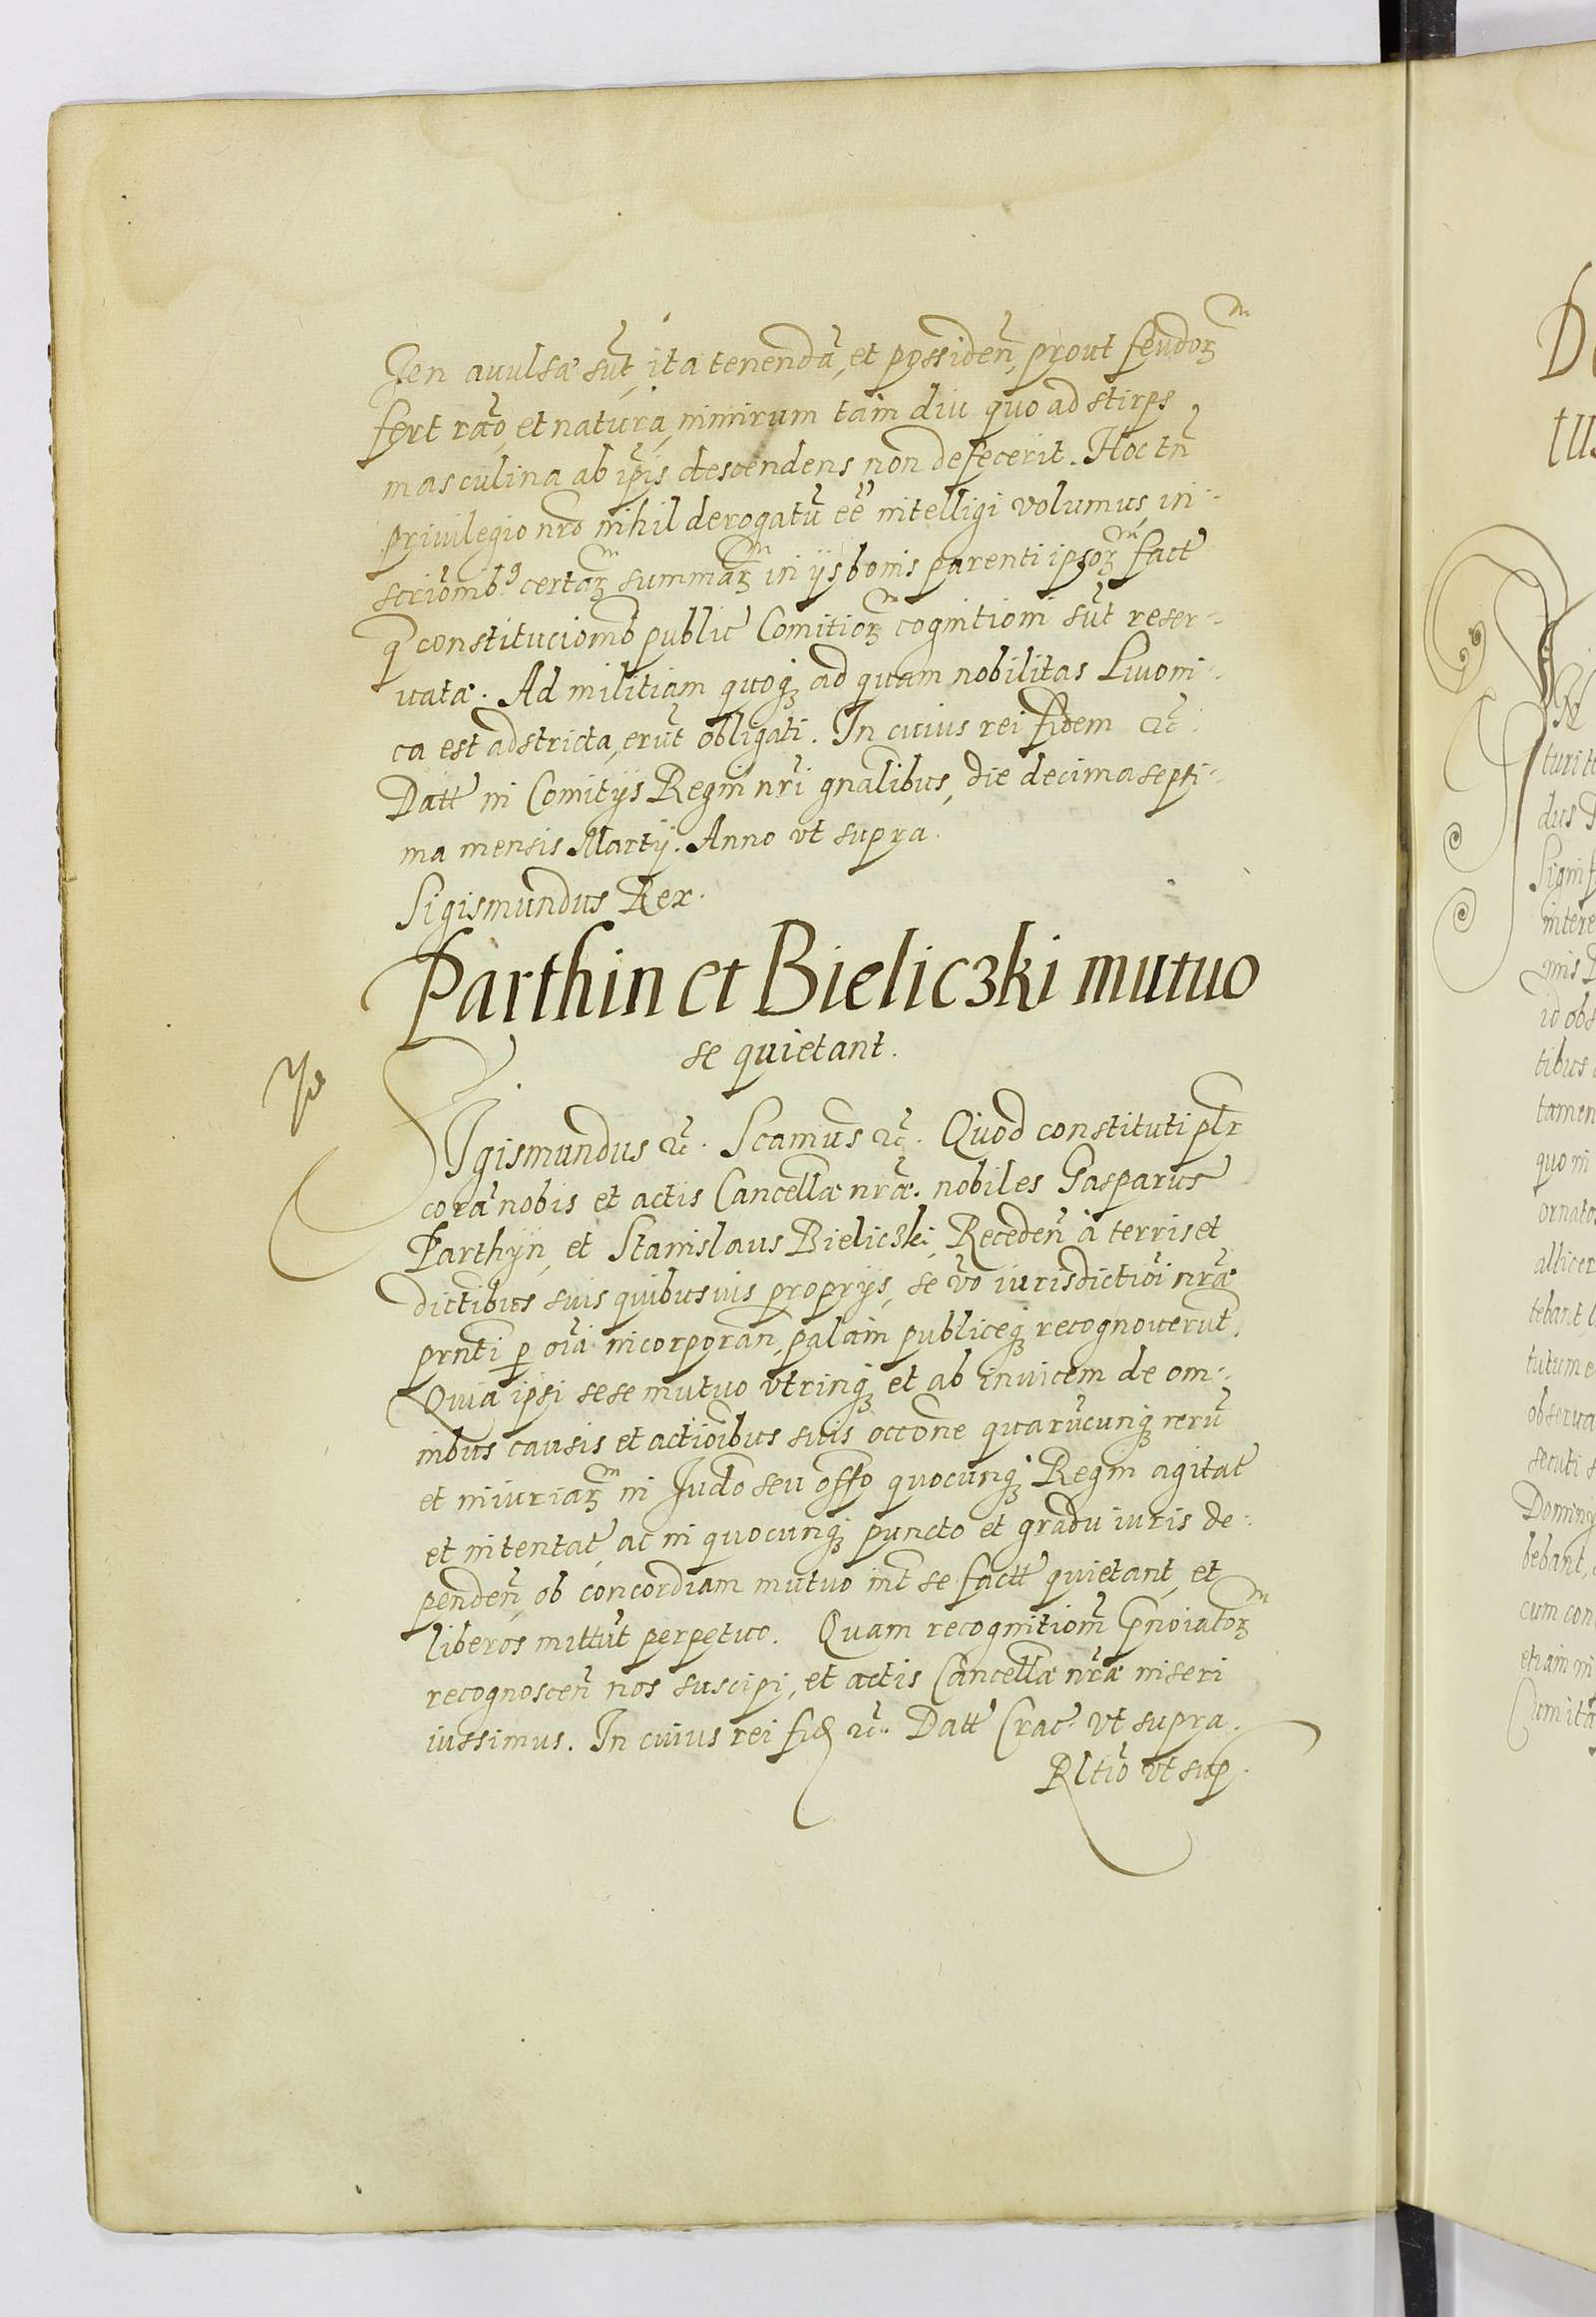 Jen auulsæ sūt, ita tenendā, et possideñ, prout feudoꝝm
fert rāo, et natura, nimirum tam diu quo ad stirps
masculina ab ip̄is descendens non defecerit. Hoc tñ
priuilegio nr̄o nihil derogatū eē intelligi volumus, in:
scriōmb9 certaꝝm summaꝝm in ijs bonis parenti ipsoꝝm fact
q̄ constitucionib public Comitioꝝm cognitioni sūt reser:
uatæ. Ad militiam quoqꝫ ad quam nobilitas Liuoni:
ca est adstricta, erūt obligati. In cuius rei fidem &c̄.
Datt in Comitijs Regni nr̄i gnālibus, die decima septi:
ma mensis Martij. Anno vt supra.
Sigismundus Rex.
Parthin et Bieliczki mutuo
se quietant.
SIgismundus &c̄. Scamus &c̄. Quod constituti pl̄r
corā nobis et actis Cancellæ nr̄æ. nobiles Gasparus
Parthyn, et Stanislaus Bieliczki, Recedeñ à terris et
dictībus suis quibusuis proprijs, se v̄o iurisdictiōi nr̄æ
prn̄ti ꝑ oīa incorporan̄, palam publiceqꝫ recognouerūt.
Quia ipsi sese mutuo vtrinqꝫ et ab inuicem de om:
nibus causis et actioībus suis occōne quarūcunqꝫ rerū
et iniuriaꝝm in Judō seu offō quocunqꝫ Regni agitat
et intentat, ac in quocunqꝫ puncto et gradu iuris de:
pendeñ, ob concordiam mutuo int̄ se factt quietant, et
liberos mittūt perpetuo. Quam recognitionm̄ p̄noiatoꝝm
recognosceñ nos suscipi, et actis Cancellæ nr̄æ inseri
iussimus. In cuius rei fid &c̄. Datt Crac. vt supra.
Rltiō vt sup.